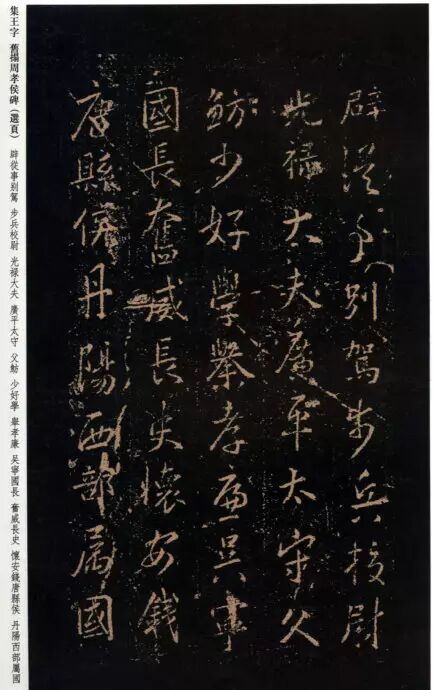 辟從事別駕步兵校尉
光祿大夫廣平太守父
魴少好學舉孝廉吳寧
國長奮威長史懷安錢
唐縣侯丹陽西部屬國
集王字 舊搨周孝侯碑（選頁） 辟從事別駕 步兵校尉 光祿大夫 廣平太守 父魴 少好學 舉孝廉 吳寧國長 奮威長史 懷安錢唐縣侯 丹陽西部屬國